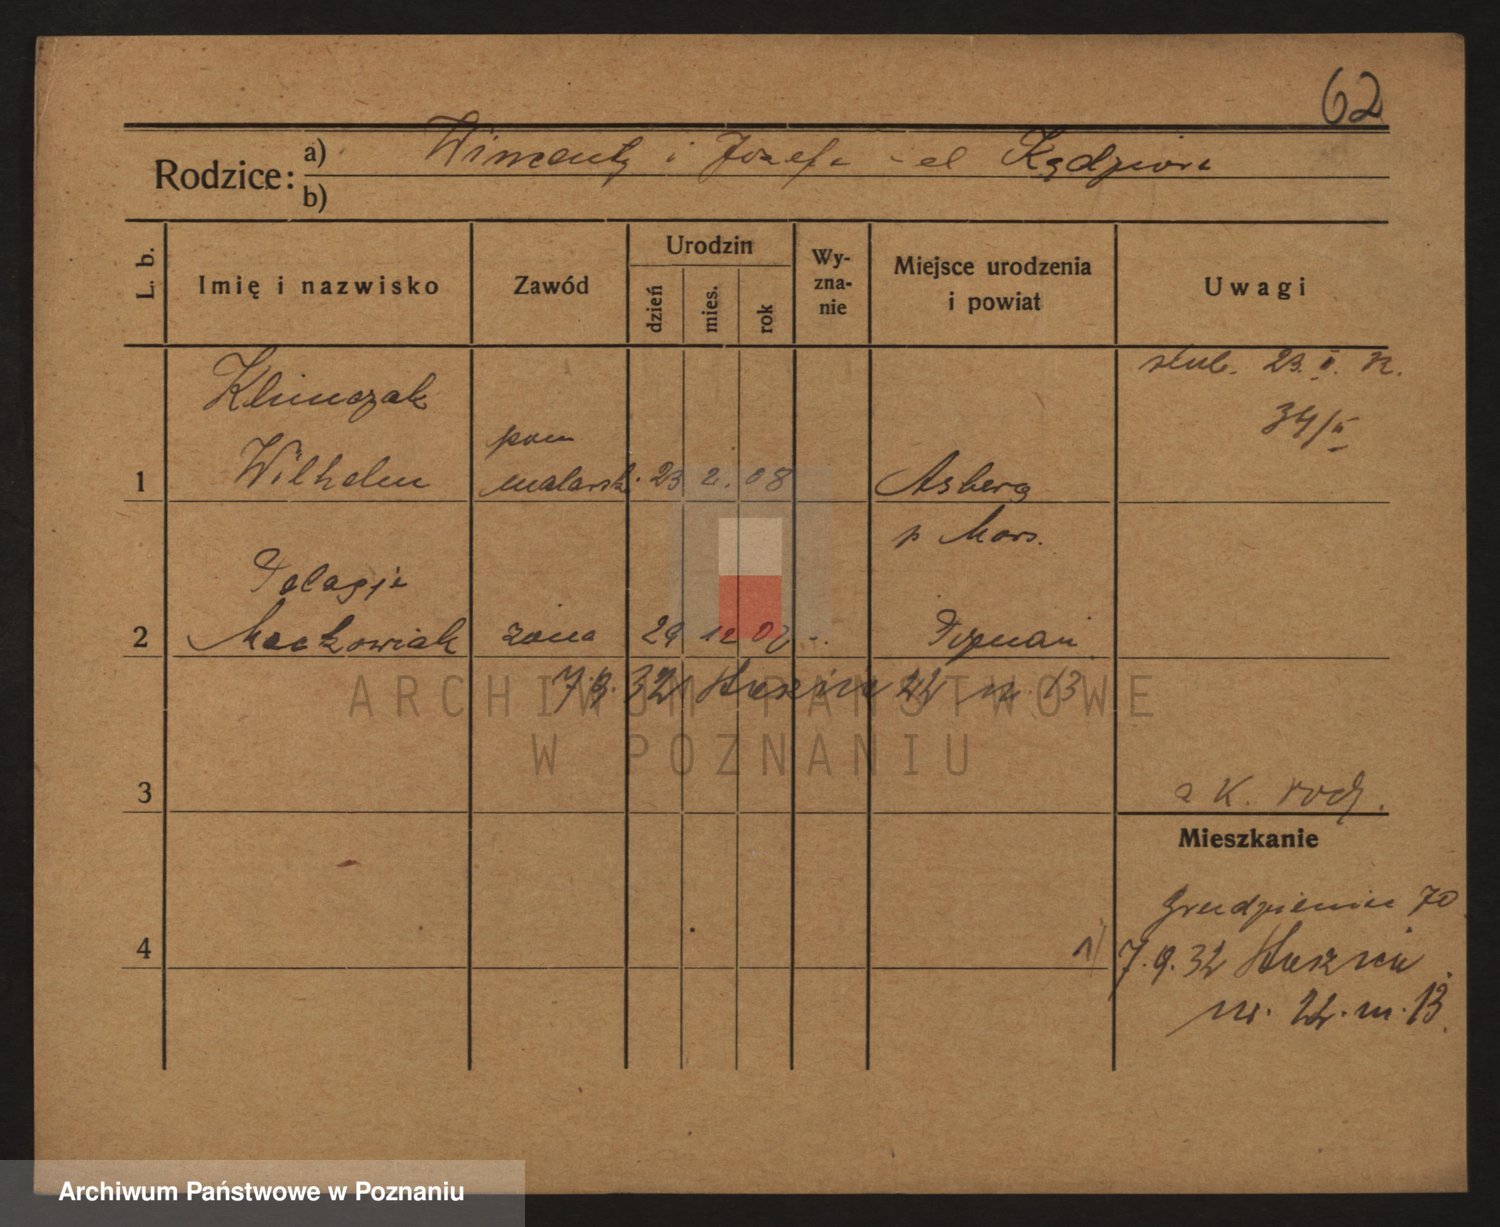 62
Rodzice: a) Wincenty i Józefa Kędziora
b)
L. b.
Imię i nazwisko
Zawód
Urodzin
dzień
mies.
rok
Wy-
zna-
nie
Miejsce urodzenia
i powiat
Uwagi
ślub. 23. II. 32.
34/II
Klimczak
1 Wilhelm pom malarsk. 23 2. 08 Asberg
p Mörs.
Pelagja
2 Maćkowiak żona 29 12 Poznań
7.9.32 22 m. 13
ARCHIWUM PAŃSTWOWE
W POZNANIU
3 z K. rodz.
Mieszkanie
Grudzieniec 70
4 1) 7.9.32
nr. 22. m. 13.
Archiwum Państwowe w Poznaniu